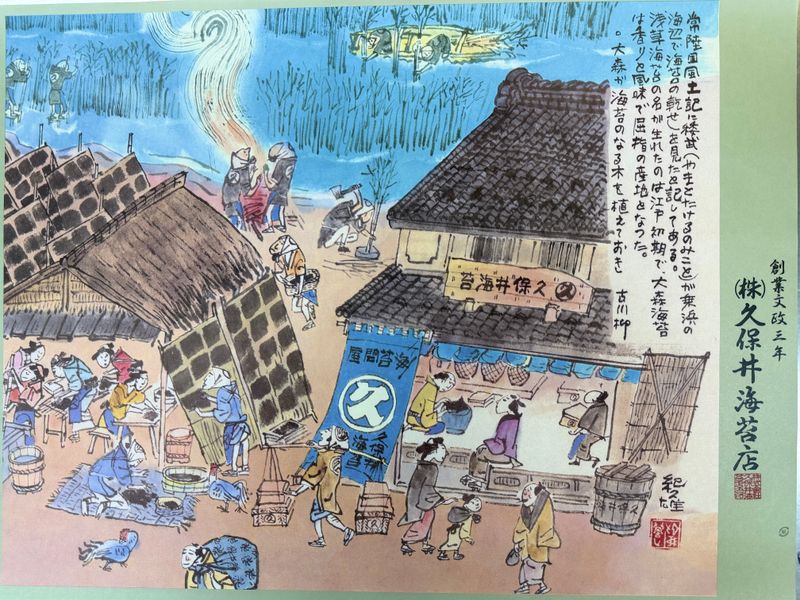 創業文政三年
(株)久保井海苔店
常陸国風土記に倭武(やまとたけるのみこと)が乗浜の
海辺で海苔の乾せしを見たと記してある。
浅草海苔の名が生れたのは江戸初期で、大森海苔
は香りと風味で屈指の産地となった。
。大森が海苔のなる木を植えておき 古川柳
久 久保井海苔
海苔問屋
久
久保井
海苔
久保井海苔
紀久雄